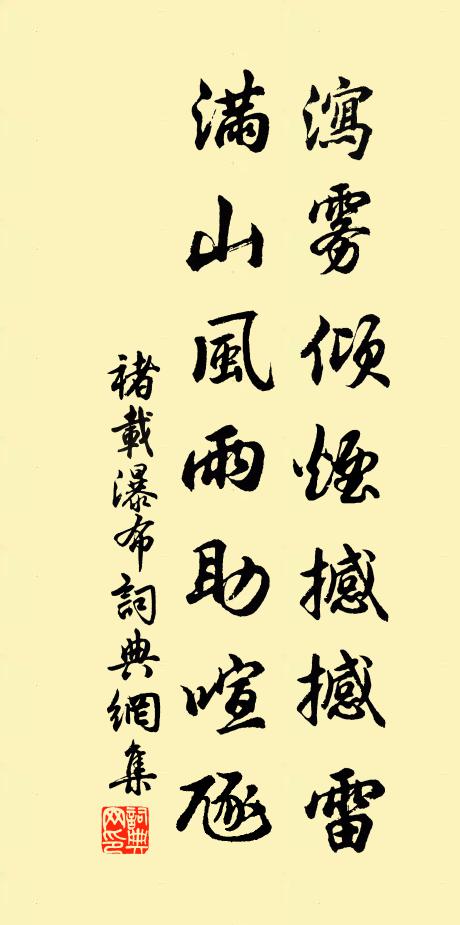 瀉雾傾煙撼撼雷
滿山風雨助喧豗
褚載瀑布詞典網集
詞典網印